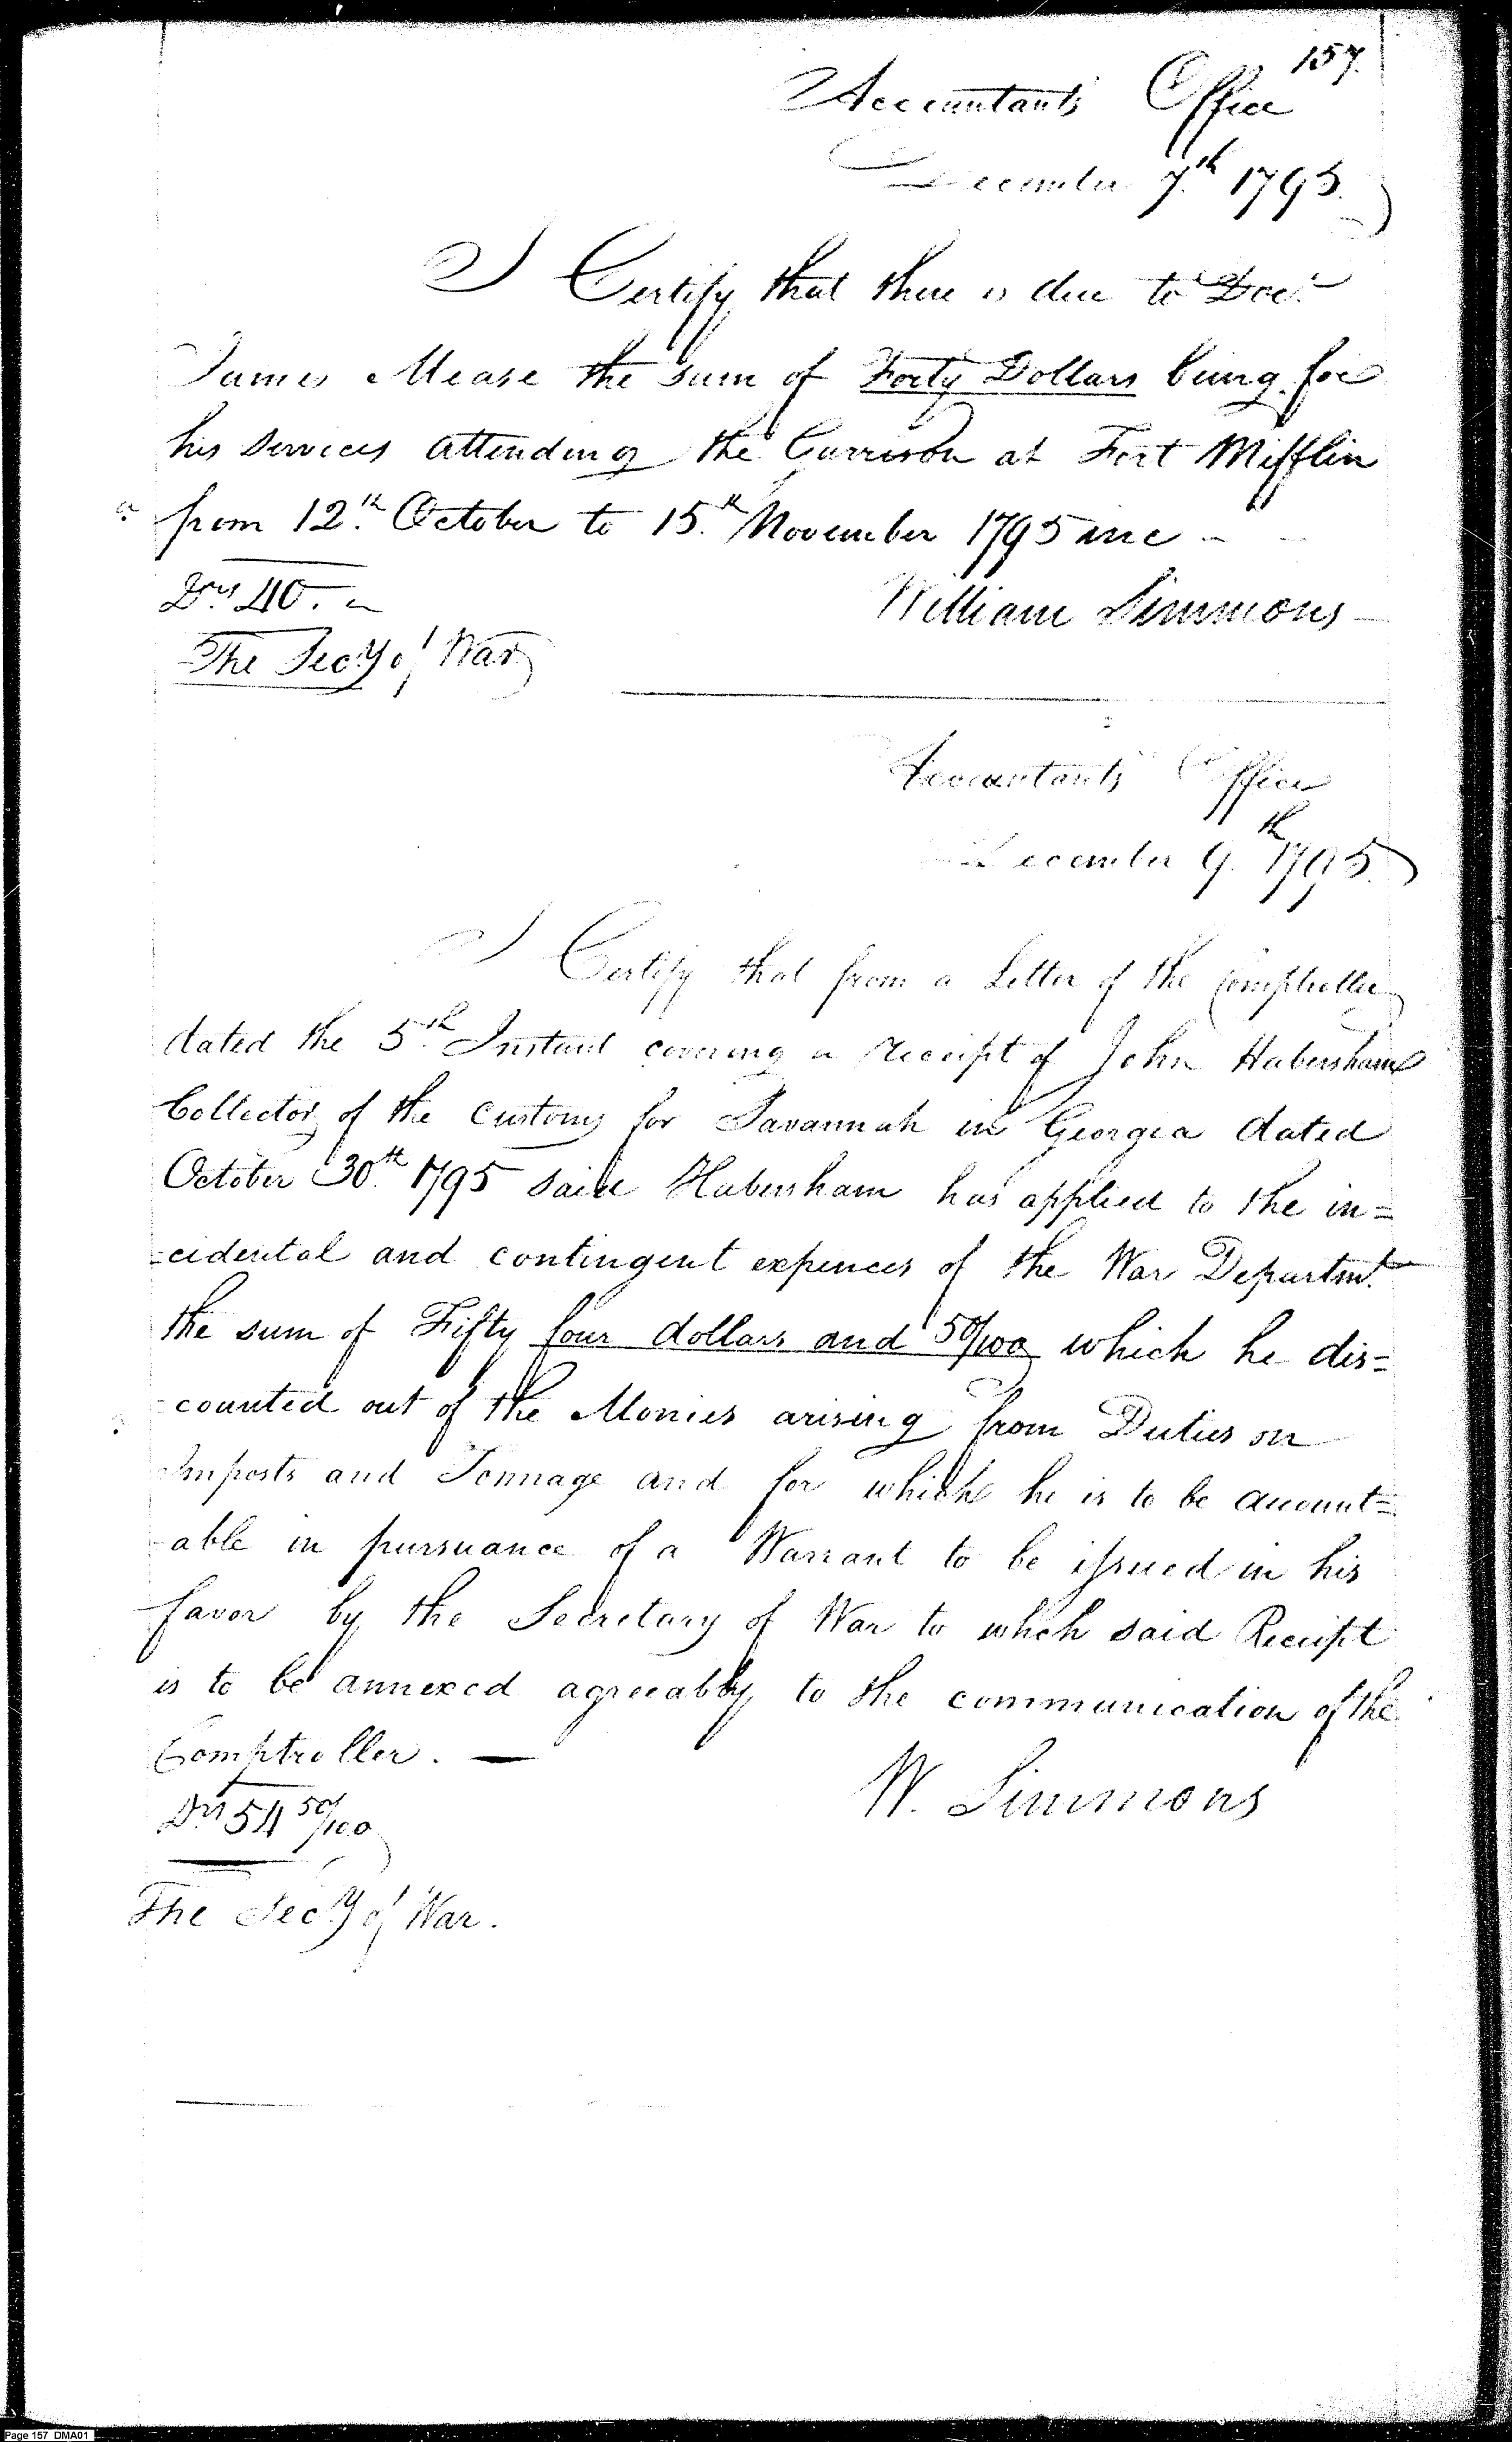 157.
Accountants Office
December 7th 1795.
I Certify that there is due to Docr
James Mease the sum of Forty Dollars being for
his Services attending the Garrison at Fort Mifflin
from 12th October to 15th November 1795 inc
Drs 40.
William Simmons
The Secy of War
Accountants Office
December 9th 1795.
I Certify that from a Letter of the Comptroller
dated the 5th Instant covering a receipt of John Habersham
Collector of the Customs for Savannah in Georgia dated
October 30th 1795 said Habersham has applied to the in=
=cidental and contingent expences of the War Departmt
the sum of Fifty four dollars and 50/100 which he dis=
=counted out of the Monies arising from Duties on
Imposts and Tonnage and for which he is to be account=
=able in pursuance of a Warrant to be issued in his
favor by the Secretary of War to which said Receipt
is to be annexed agreeably to the communication of the
Comptroller. —
W. Simmons
Drs 54 50/100
The Secy of War.
Page 157 DMA01